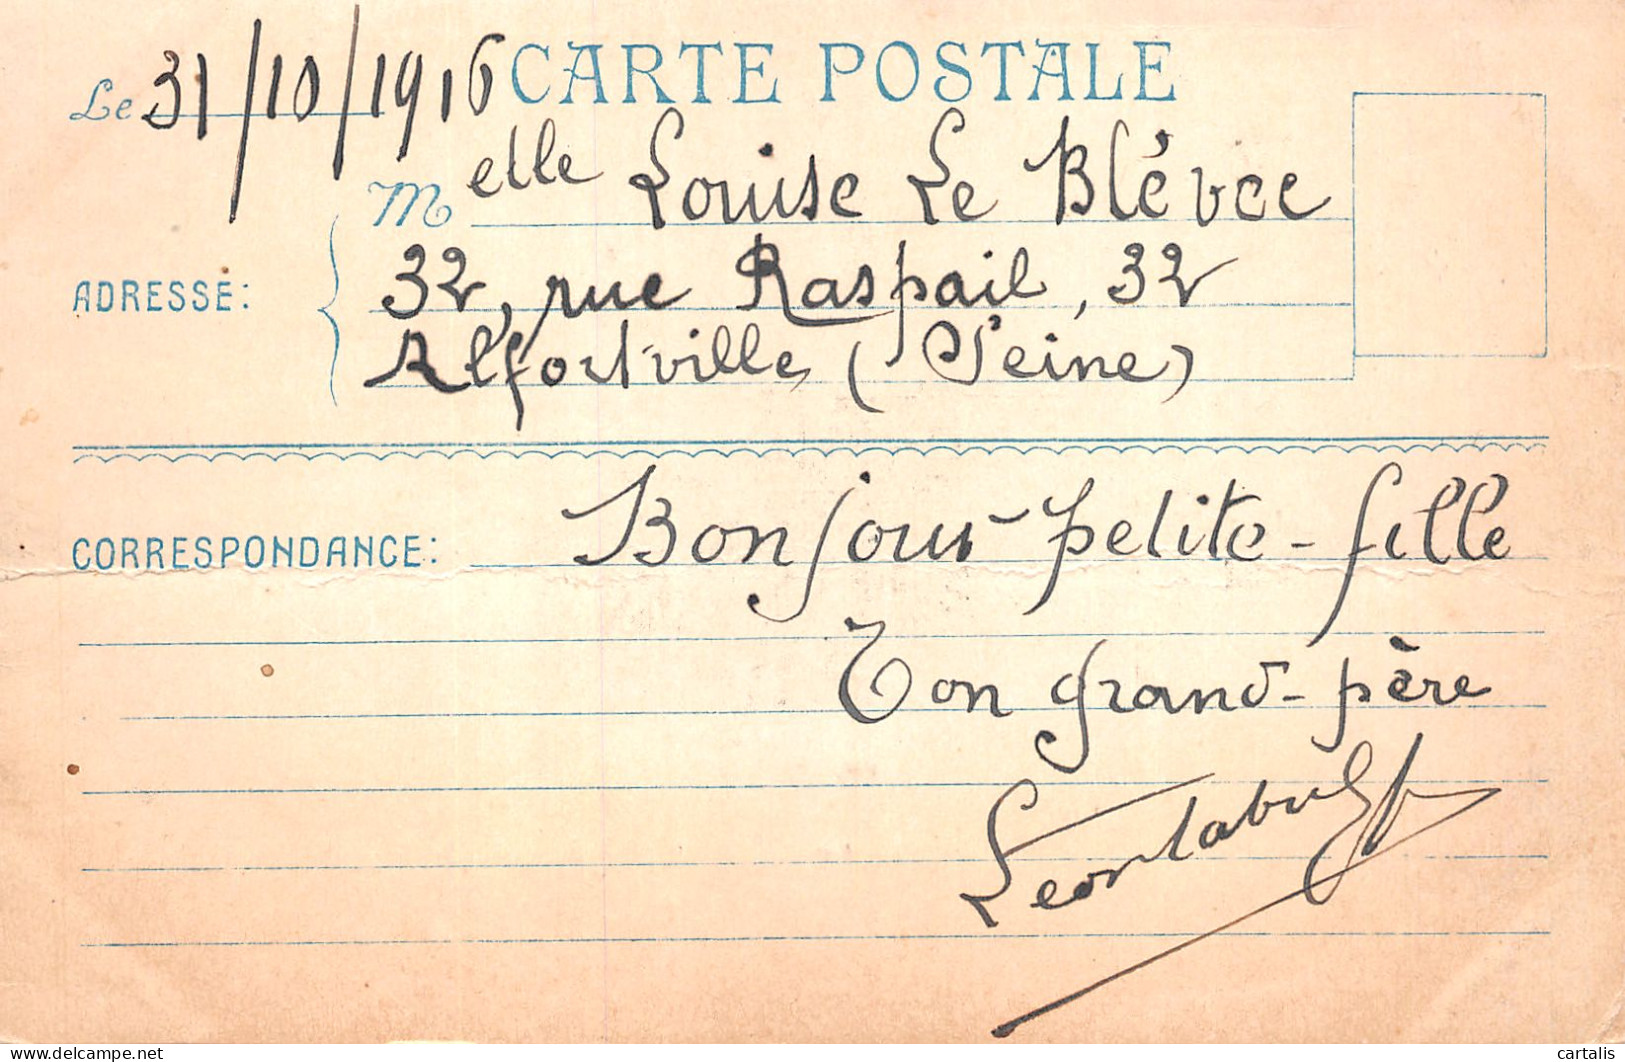 Le 31/10/1916 CARTE POSTALE
Melle Louise Le Blévec
ADRESSE: 32, rue Raspail, 32
Alfortville (Seine)
CORRESPONDANCE: Bonjour petite-fille
Ton grand-père
cartalis